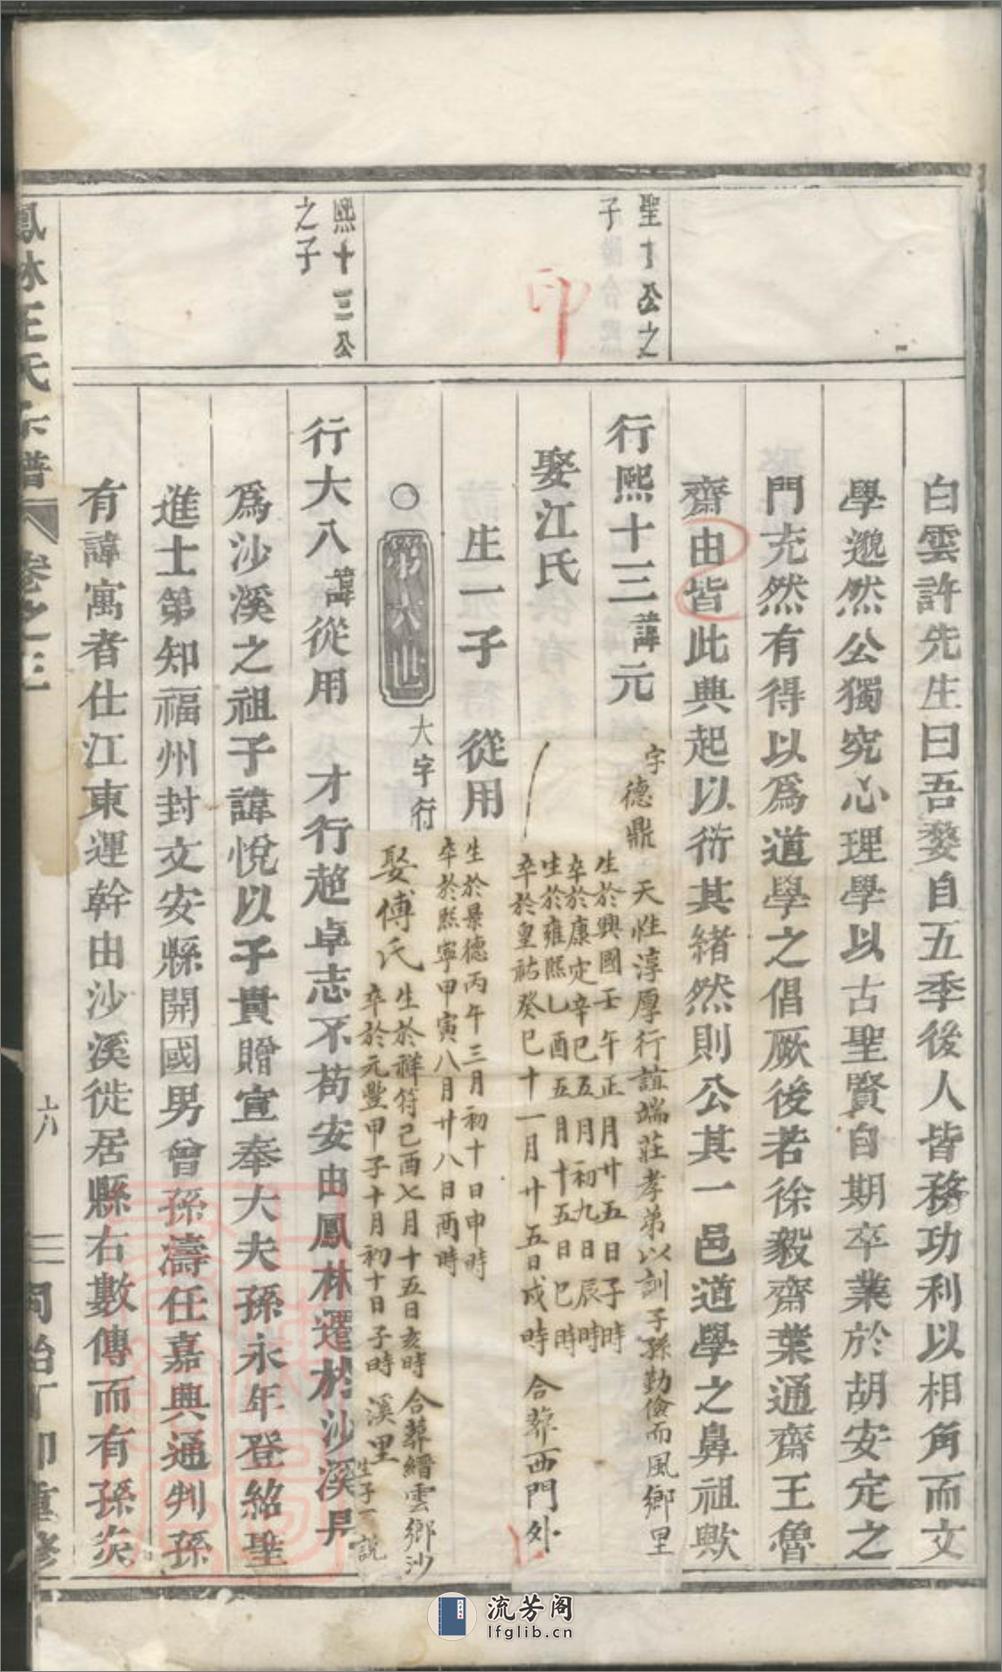 白雲許先生曰吾婺自五季後人皆務功利以相角而文
學邈然公獨究心理學以古聖賢自期卒業於胡安定之
門充然有得以爲道學之倡厥後若徐毅齋葉通齋王魯
齋由皆此典起以衍其緒然則公其一邑道學之鼻祖歟
聖十公之
子
印
行熙十三諱元
字德鼎 天性淳厚行誼端莊孝弟以訓子孫勤儉而風鄉里
生於興國壬午正月廿五日子時
卒於康定辛巳五月初九日辰時
娶江氏
生於雍熙乙酉五月十五日巳時
卒於皇祐癸巳十一月廿五日戌時 合葬西門外
生一子 從用
○ 第六世 大字行
熙十三公
之子
行大八諱從用
生於景德丙午三月初十日申時
卒於熙寧甲寅八月廿八日酉時
娶傅氏
生於祥符己酉七月十五日亥時 合葬縉雲鄉沙
卒於元豐甲子十月初十日子時 溪里
生子一 說
才行越卓志不苟安由鳳林遷於沙溪是
爲沙溪之祖子諱悅以子貴贈宣奉大夫孫永年登紹聖
進士第知福州封文安縣開國男曾孫濤任嘉興通判孫
有諱寓者仕江東運幹由沙溪徙居縣右數傳而有孫炎
鳳林王氏宗譜 卷之三 六 同治丁卯重修
流芳阁
lfglib.cn